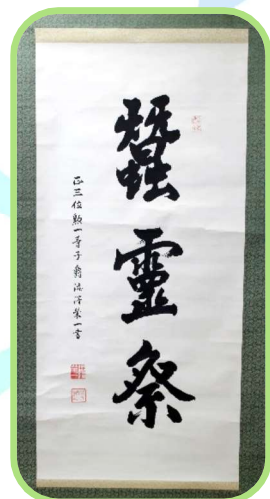 蠶靈祭
正三位勲一等子爵澁澤榮一書